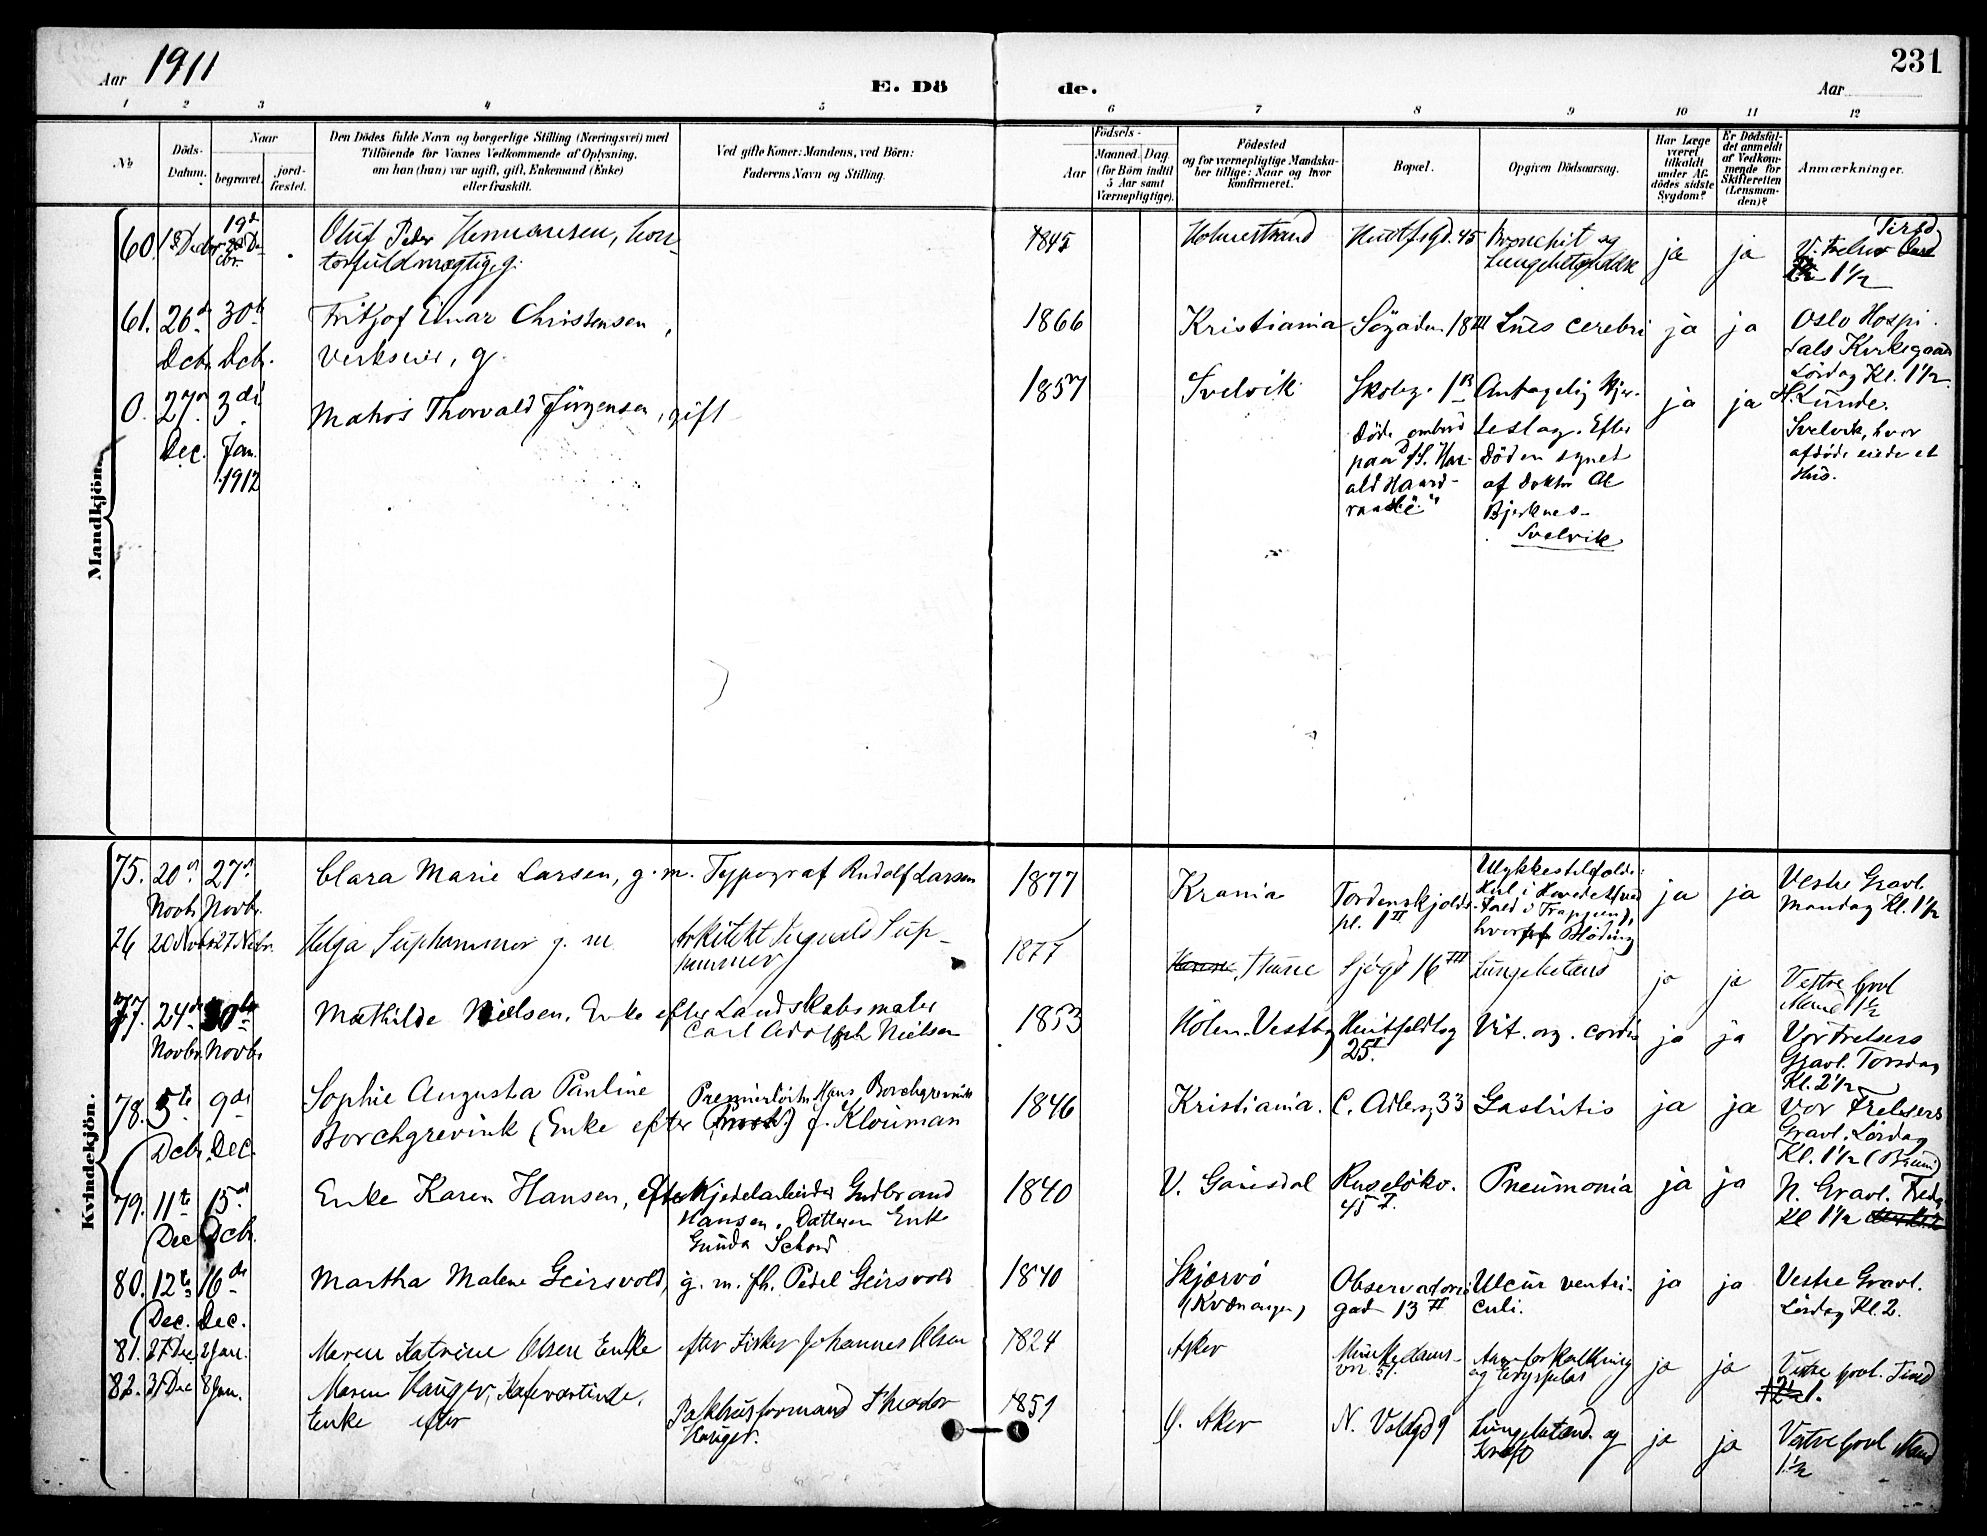 Aar 1911
E. Dö
de.
231
Aar
1 2 3 4 5 6 7 8 9 10 11 12
No
Döds-
Datum.
Naar
begravet.
jord-
fæstet.
Den Dödes fulde Navn og borgerlige Stilling (Næringsvei) med
Tilföiende for Voxnes Vedkommende af Oplysning,
om han (hun) var ugift, gift, Enkemand (Enke)
eller fraskilt.
Ved gifte Koner: Mandens, ved Börn:
Faderens Navn og Stilling.
Födsels-
Aar
Maaned. Dag
(for Börn indtil
5 Aar samt
Værnepligtige).
Födested
og for værnepligtige Mandska-
ber tillige: Naar og hvor
konfirmeret.
Bopæl.
Opgiven Dödsaarsag.
Har Læge
været
tilkaldt
under Af-
dödes sidste
Sygdom?
Er Dödsfal-
det anmeldt
af Vedkom-
mende for
Skifteretten
(Lensman-
den)?
Anmærkninger.
Mandkjön.
60.
Oluf Peder Hermansen, kon-
torfuldmægtig, g.
1845
Holmestrand
Bronchit og
ja
ja
1½
61.
26de
Dcbr.
30te
Dcbr.
Fritjof Einar Christensen,
Verkseier, g.
1866
Kristiania
18 III
Lues cerebri
ja
ja
Oslo Hospi-
tals Kirkegaard
Lördag Kl. 1½
0.
27de
Dec.
3di
Jan.
1912
Matros Thorvald Jörgensen, gift
1857
Svelvik
Död ombord
paa S/S. Har-
ald Haard-
raade"
Antagelig Hjer-
teslag. Efter
Döden synet
af Doktor
Bjerknes-
Svelvik
ja
ja
Svelvik, hvor
afdöde eiede et
Hus.
Kvindekjön.
75.
20de
Novbr.
27de
Novbr.
Clara Marie Larsen, g. m.
Typograf Rudolf Larsen
1877
Krania
Tordenskjolds
pl. 1 II
Ulykkestilfælde:
Hul i Hovedet (ved
Fald i Trappen),
hvorpaa Blödning
ja
ja
Vestre Gravl.
Mandag Kl. 1½
76
20 Novbr.
27 Novbr.
Helga Suphammer g. m.
Arkitekt Sigurds Sup-
hammer
1877
Sjögd 16 III
Lungebetænd
ja
ja
Vestre Gravl
Mand 1½
77.
24de
Novbr.
30te
Novbr.
Mathilde Nielsen. Enke efter
Landskabsmaler
Carl Adolph Nielsen
1853
Hölen. Vestby
Huitfeldtsg
25 I.
Vit. org. cordis
ja
ja
Vor Frelsers
Gravl. Torsdag
Kl. 2½
78.
5te
Dcbr.
9de
Dec.
Sophie Augusta Pauline
Borchgrevink (Enke efter
Premierlöitn. Hans Borchgrevink
f. Klouman
1846
Kristiania.
C. Adlersg 33
Gastritis
ja
ja
Vor Frelsers
Gravl. Lördag
Kl. 1½ (Bruun)
79.
11te
Dec
15de
Dcbr.
Enke Karen Hansen, efter
Kjedelarbeider Gudbrand
Hansen. Datteren Enke
Gunda Schou
1840
V. Gausdal
Ruselökv.
45 I.
Pneumonia
ja
ja
N. Gravl. Fredag
Kl 1½
80.
12te
Dec.
16de
Dec.
Martha Malene Geirsvold,
g. m. fh. Pedel Geirsvold
1840
Skjærvö
(Kvænangen)
Observatorie
gad. 13 II
Ulcur ventri-
culi.
ja
ja
Vestre Gravl.
Lördag Kl. 2.
81.
27 Dec
2 Jan.
Maren Katrine Olsen Enke
efter Fisker Johannes Olsen
1824
Asker
Munkedams-
vn. 51.
Aareforkalkning
og Erysipelas
ja
ja
Vestre Gravl. Tirsd
1.
82.
31 Dec
8 Jan.
Maren Hauger, Kafeværtinde,
Enke efter
Pakhusformand Theodor
Hauger.
1851
Ö. Aker
N. Voldgd 9
Lungebetænd. og
Kræft
ja
ja
Vestre Gravl Mand
1½